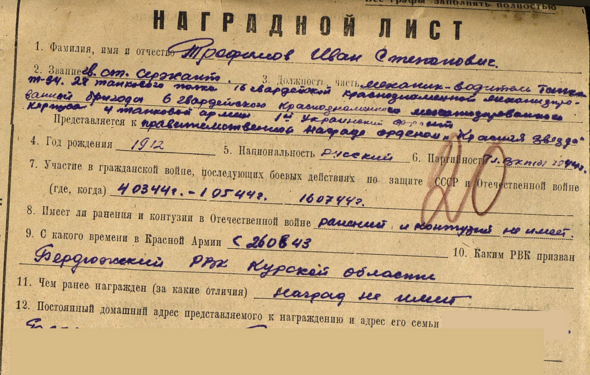 Все графы заполнять полностью
НАГРАДНОЙ ЛИСТ
1. Фамилия, имя и отчество Трофимов Иван Степанович.
2. Звание гв. ст. сержант. 3. Должность, часть механик-водитель танка
Т-34. 28 танкового полка 16 гвардейской краснознаменной механизиро-
ванной бригады 6 гвардейского Краснознаменного механизированного
корпуса 4 танковой армии 1й Украинский фронт
Представляется к правительственной награде орденом "Красная звезда"
4. Год рождения 1912 5. Национальность русский 6. Партийность
7. Участие в гражданской войне, последующих боевых действиях по защите СССР и Отечественной войне
(где, когда) 4 03 44г. - 1 05 44г. 16 07 44г.
8. Имеет ли ранения и контузии в Отечественной войне ранений и контузий не имеет.
9. С какого времени в Красной Армии с 26 08 43 10. Каким РВК призван
РВК Курской области
11. Чем ранее награжден (за какие отличия) наград не имеет
12. Постоянный домашний адрес представляемого к награждению и адрес его семьи
20